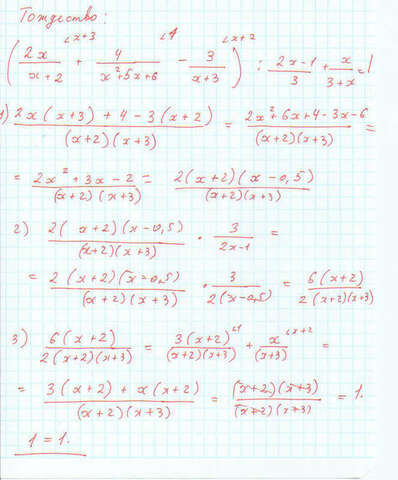 Тождество:
(2x/(x+2) ∠x+3 + 4/(x²+5x+6) ∠1 − 3/(x+3) ∠x+2) : (2x−1)/3 + x/(3+x) = 1
1) (2x(x+3)+4−3(x+2))/((x+2)(x+3)) = (2x²+6x+4−3x−6)/((x+2)(x+3)) =
= (2x²+3x−2)/((x+2)(x+3)) = (2(x+2)(x−0,5))/((x+2)(x+3))
2) (2(x+2)(x−0,5))/((x+2)(x+3)) · 3/(2x−1) =
= (2(x+2)(x−0,5))/((x+2)(x+3)) · 3/(2(x−0,5)) = (6(x+2))/(2(x+2)(x+3))
3) (6(x+2))/(2(x+2)(x+3)) = (3(x+2))/((x+2)(x+3)) ∠1 + x/(x+3) ∠x+2 =
= (3(x+2)+x(x+2))/((x+2)(x+3)) = ((x+2)(x+3))/((x+2)(x+3)) = 1.
1 = 1.